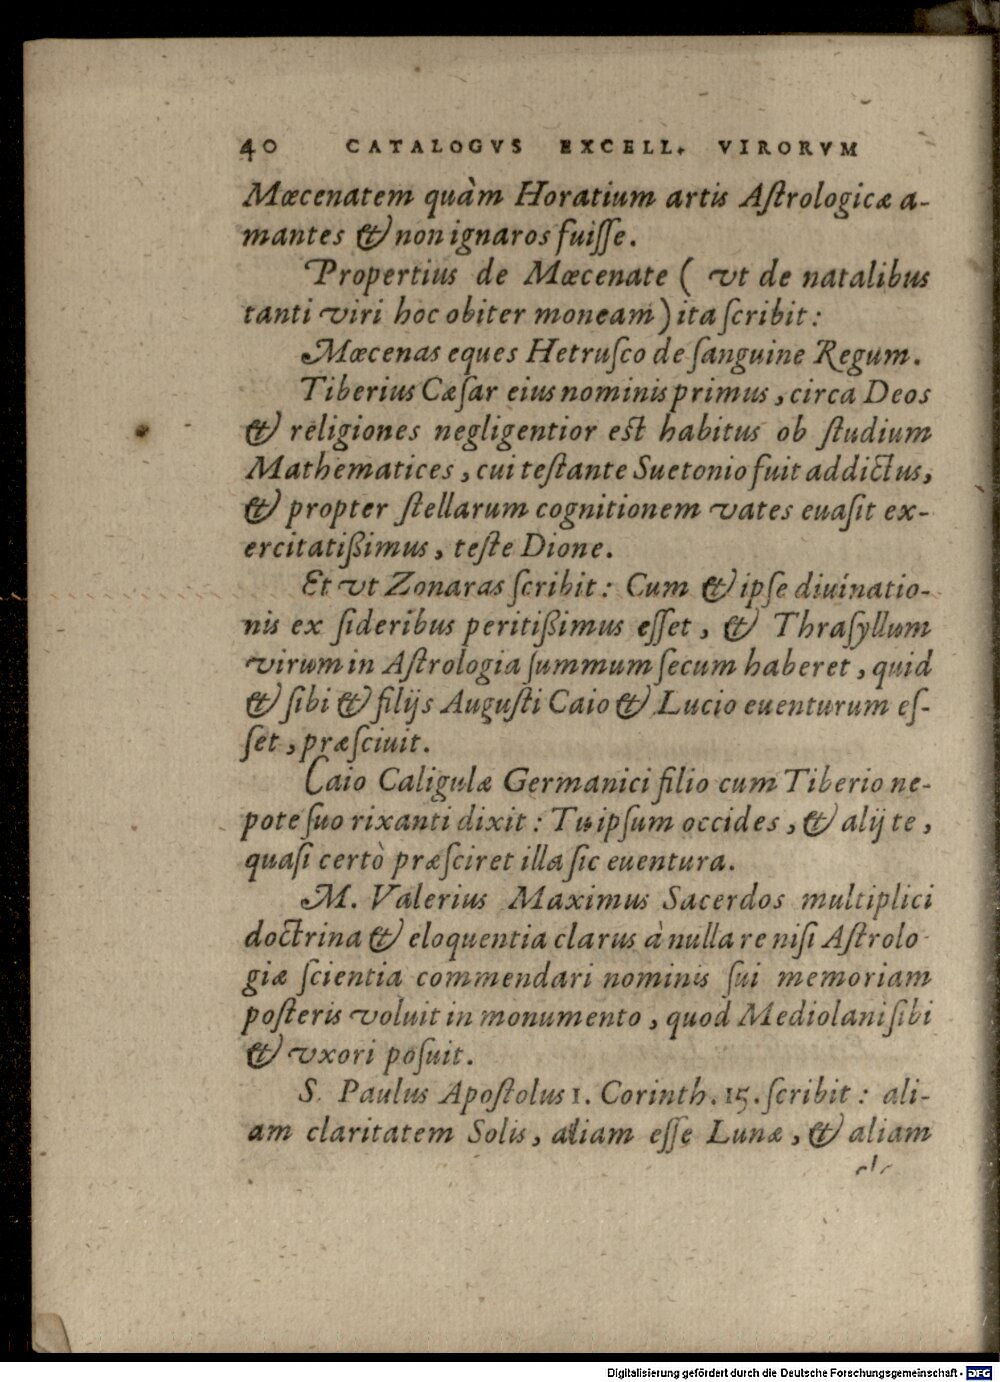 40 CATALOGVS EXCELL. VIRORVM
Mœcenatem quàm Horatium artis Aſtrologicæ a-
mantes & non ignaros fuiſſe.
Propertius de Mœcenate ( vt de natalibus
tanti viri hoc obiter moneam ) ita ſcribit :
Mœcenas eques Hetruſco de ſanguine Regum.
Tiberius Cæſar eius nominis primus, circa Deos
& religiones negligentior eſt habitus ob ſtudium
Mathematices, cui teſtante Suetonio fuit addictus,
& propter ſtellarum cognitionem vates euaſit ex-
ercitatißimus, teſte Dione.
Et vt Zonaras ſcribit : Cum & ipſe diuinatio-
nis ex ſideribus peritißimus eſſet, & Thraſyllum
virum in Aſtrologia ſummum ſecum haberet, quid
& ſibi & filijs Auguſti Caio & Lucio euenturum eſ-
ſet, præſciuit.
Caio Caligulæ Germanici filio cum Tiberio ne-
pote ſuo rixanti dixit : Tu ipſum occides, & alij te,
quaſi certò præſciret illa ſic euentura.
M. Valerius Maximus Sacerdos multiplici
doctrina & eloquentia clarus à nulla re niſi Aſtrolo-
giæ ſcientia commendari nominis ſui memoriam
poſteris voluit in monumento, quod Mediolani ſibi
& vxori poſuit.
S. Paulus Apoſtolus 1. Corinth. 15. ſcribit : ali-
am claritatem Solis, aliam eſſe Lunæ, & aliam
Digitalisierung gefördert durch die Deutsche Forschungsgemeinschaft - DFG